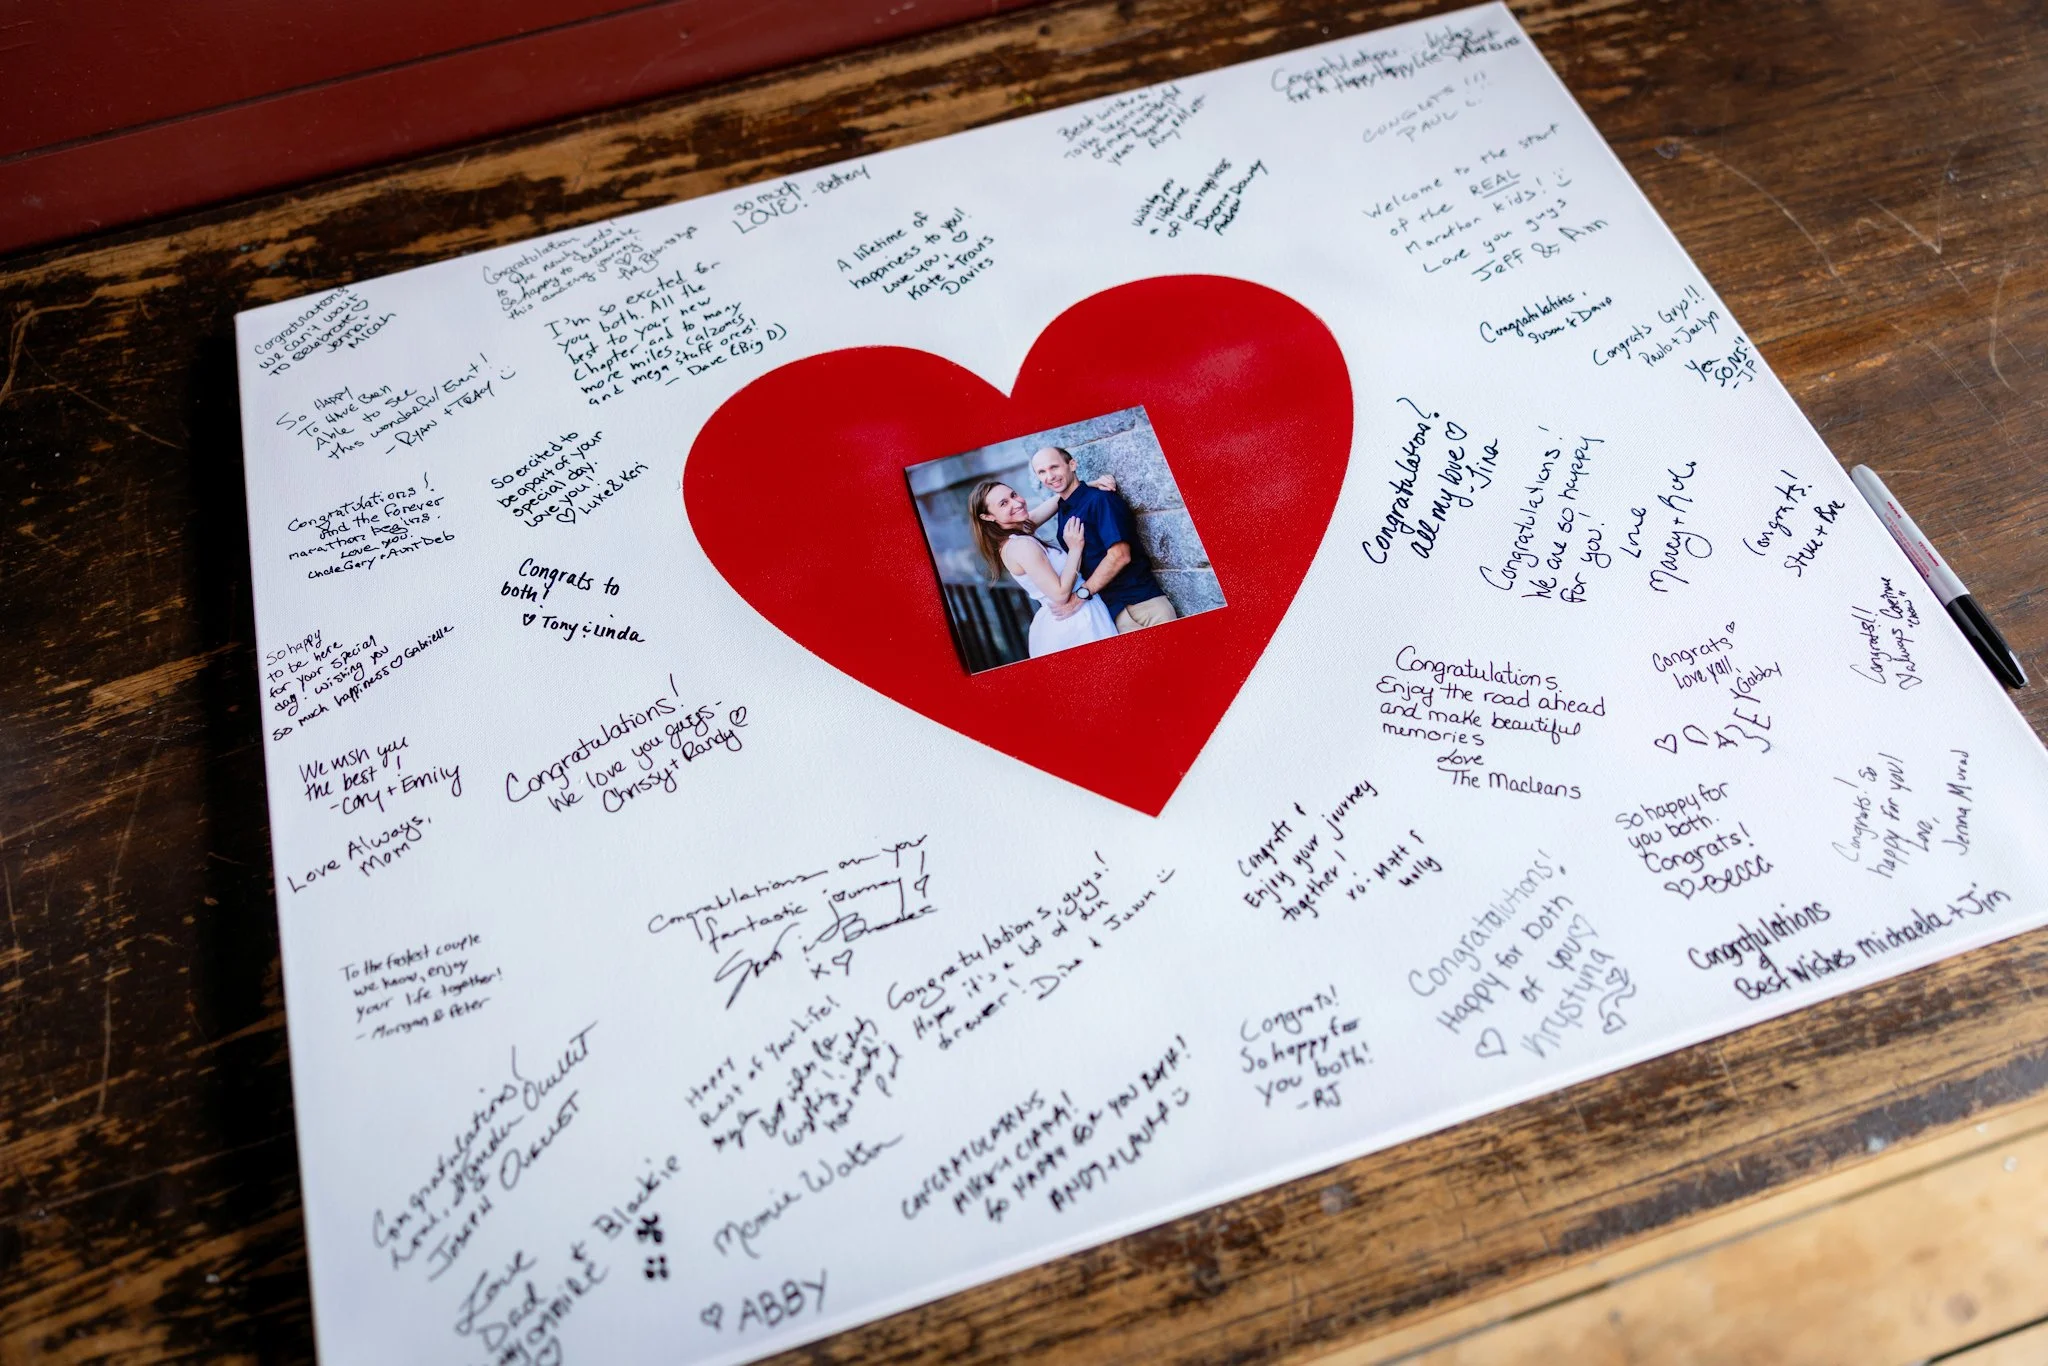 Congratulations
we can't wait
to celebrate
Jenna +
Micah
Congratulations
to the newly weds!
So happy to celebrate
this amazing journey!
so much
LOVE! -Bethany
I'm so excited for
you both. All the
best to your new
Chapter and to many
more miles, calzones
and mega stuff oreos!
- Dave (Big D)
A lifetime of
happiness to you!
Love you,
Kate + Travis
Davies
Best wishes!
To the beginning
of many wonderful
years together!
Amy & Matt
Wishing you
a lifetime
of love & happiness
Congratulations
for a Happy Happy Life
CONGRATS!!!
PAUL
Welcome to the start
of the REAL
Marathon kids!
Love you guys
Jeff & Ann
Congratulations.
Susan + Dave
Congrats Guys!!
Paulo + Jaclyn
-JP
SO HAPPY
To HAVE BEEN
Able to see
this wonderful Event!
-RYAN +
So excited to
be a part of your
special day.
Love you!
♡ Luke & Keri
Congratulations!
and the forever
marathon begins.
Love you.
Uncle Gary + Aunt Deb
Congrats to
both!
♡ Tony & Linda
So happy
to be here
for your special
day! Wishing you
so much happiness ♡ Gabrielle
We wish you
the best!
- Cory + Emily
Congratulations!
We love you guys-
Chrissy + Randy
Love Always,
Mom
Congratulations!
all my love ♡
- Tina
Congratulations!
We are so happy
for you!
Love
Congrats!
Steve + Bre
Congrats!!
♡ always
Congrats
Love yall,
Gabby
Congratulations,
Enjoy the road ahead
and make beautiful
memories
Love
The Macleans
Congrats &
Enjoy your journey
together!
xo - Matt &
Holly
So happy for
you both.
Congrats!
♡ -Becca
Congrats! So
happy for you!
Love,
Jenna Murad
Congratulations
&
Best Wishes Michaela + Jim
Congratulations!
Happy for both
of you ♡
♡ Krystyna
Congratulations on your
fantastic journey!
x ♡
Congratulations, guys!
Hope it's a lot of fun
forever!
To the fastest couple
we know, enjoy
your life together!
- Morgan & Peter
Happy
Rest of Your Life!
Paul
Congrats!
So happy for
you both!
- RJ
CONGRATULATIONS
MIKE & CIARA!
SO HAPPY FOR YOU BOTH!
ANDY + LAURA
Congratulations!
Joseph
Marie Watson
Love
Dad
& Blackie
♡ ABBY